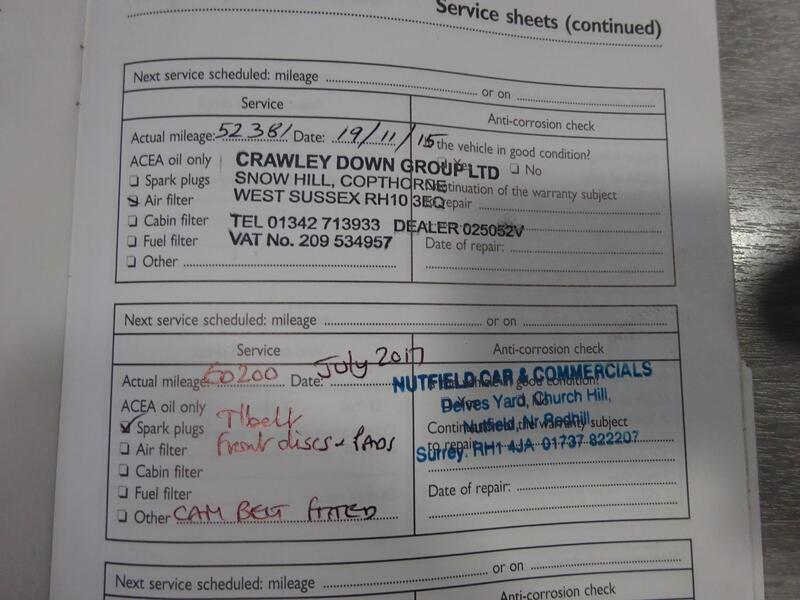 Service sheets (continued)
Next service scheduled: mileage .......... or on ..........
Service
Anti-corrosion check
Actual mileage: 52381 Date: 19/11/15
Is the vehicle in good condition?
ACEA oil only
Yes No
Spark plugs
Continuation of the warranty subject
Air filter
to repair
Cabin filter
Fuel filter
Date of repair:
Other
CRAWLEY DOWN GROUP LTD
SNOW HILL, COPTHORNE
WEST SUSSEX RH10 3EQ
TEL 01342 713933 DEALER 025052V
VAT No. 209 534957
Next service scheduled: mileage .......... or on ..........
Service
Anti-corrosion check
Actual mileage: 60200 Date: July 2017
Is the vehicle in good condition?
ACEA oil only
Yes No
Spark plugs
Continuation of the warranty subject
Air filter
to repair
Cabin filter
Fuel filter
Date of repair:
Other CAM BELT FITTED
T/belt
front discs + PADS
NUTFIELD CAR & COMMERCIALS
Delves Yard, Church Hill,
Nutfield, Nr. Redhill,
Surrey. RH1 4JA 01737 822207
Next service scheduled: mileage .......... or on ..........
Service
Anti-corrosion check